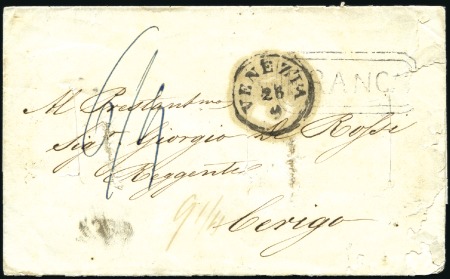 VENEZIA
25
9
FRANCO
Al Prestantmo
Sigr. Giorgio de Rossi
Reggente
9 1/4
Cerigo